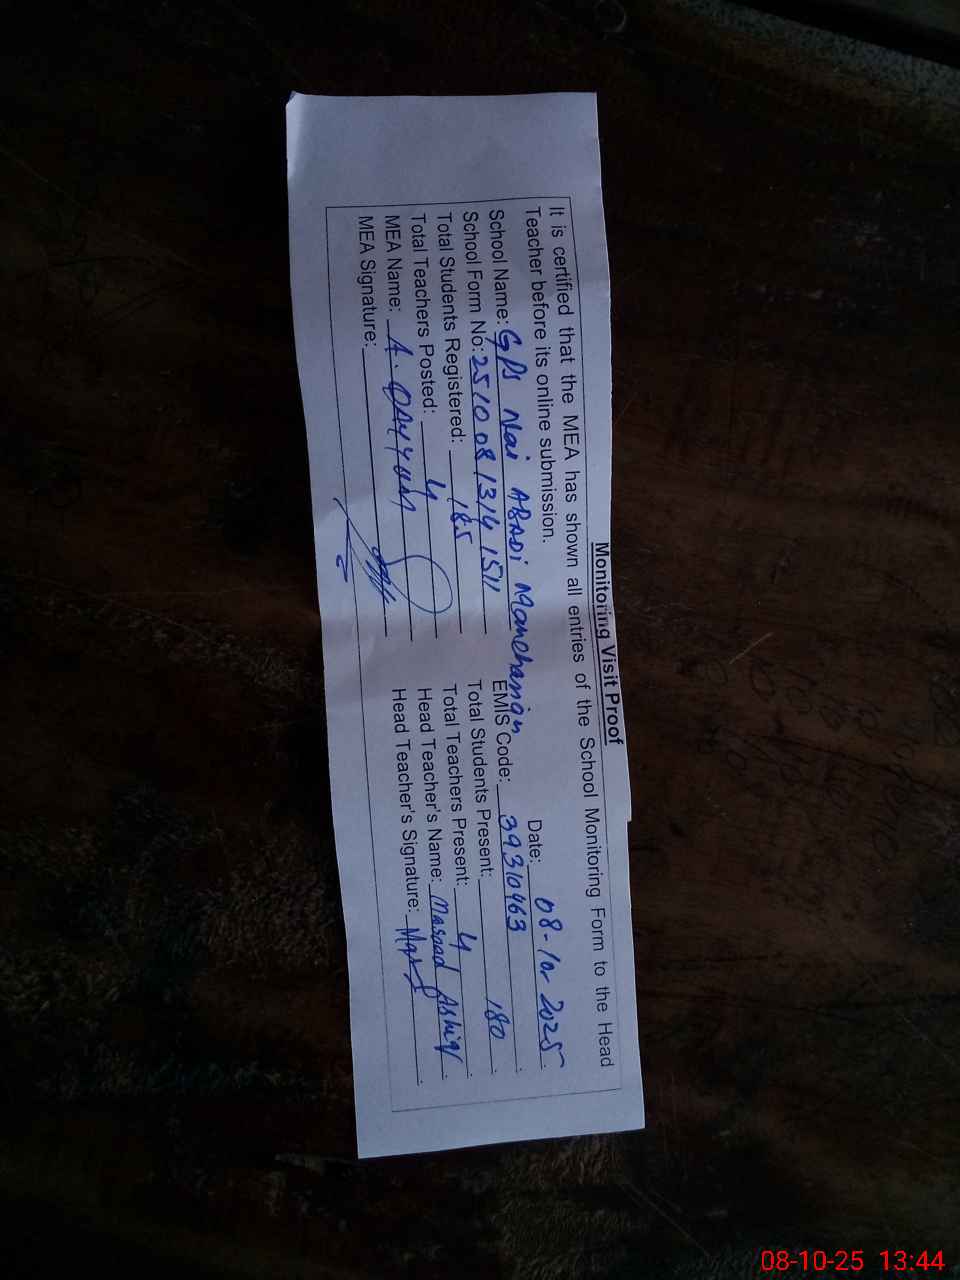 Monitoring Visit Proof
It is certified that the MEA has shown all entries of the School Monitoring Form to the Head
Teacher before its online submission. Date: 08-10-2025
School Name: GPS Nai ABADI Manchanian
EMIS Code: 39310463
School Form No: 25100813141511 Total Students Present: 180
Total Students Registered: 185 Total Teachers Present: 4
Total Teachers Posted: 4 Head Teacher's Name: Masood Ashiq
MEA Name: A. QAYYUM Head Teacher's Signature:
MEA Signature:
08-10-25 13:44